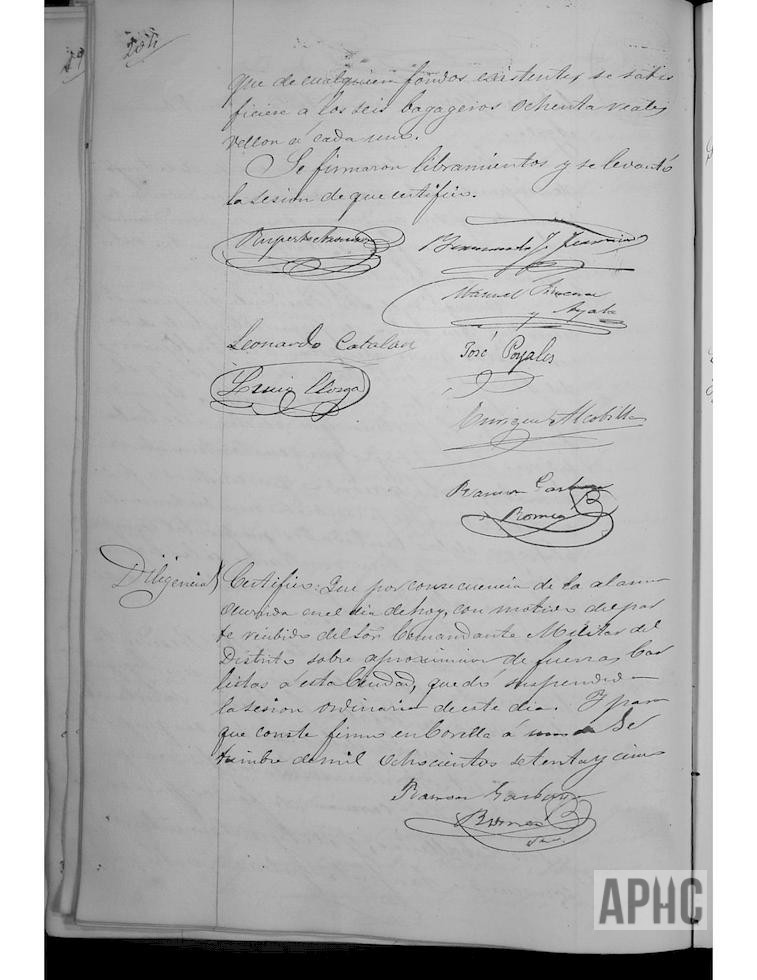 204
que de cualquier fondos existentes se satis
ficiese á los seis bagageros ochenta reales
vellon á cada uno.
Se firmaron libramientos y se levantó
la sesion de que certifico.
Manuel
y Ayala
Leonardo Catalan
José Poyales
Luis Llorga
Enrique Alcobilla
Ramon
Romeo
Diligencia
Certifico: Que por consecuencia de la alarma
ocurrida en el dia de hoy, con motivo del par
te recibido del Sor Comandante Militar del
Distrito sobre aproximacion de fuerzas Car
listas á esta Ciudad, quedó suspendida
la sesion ordinaria de este dia. Y para
que conste firmo en Corella á Se
tiembre de mil ochocientos setenta y cinco
Ramon
Romeo
APHC